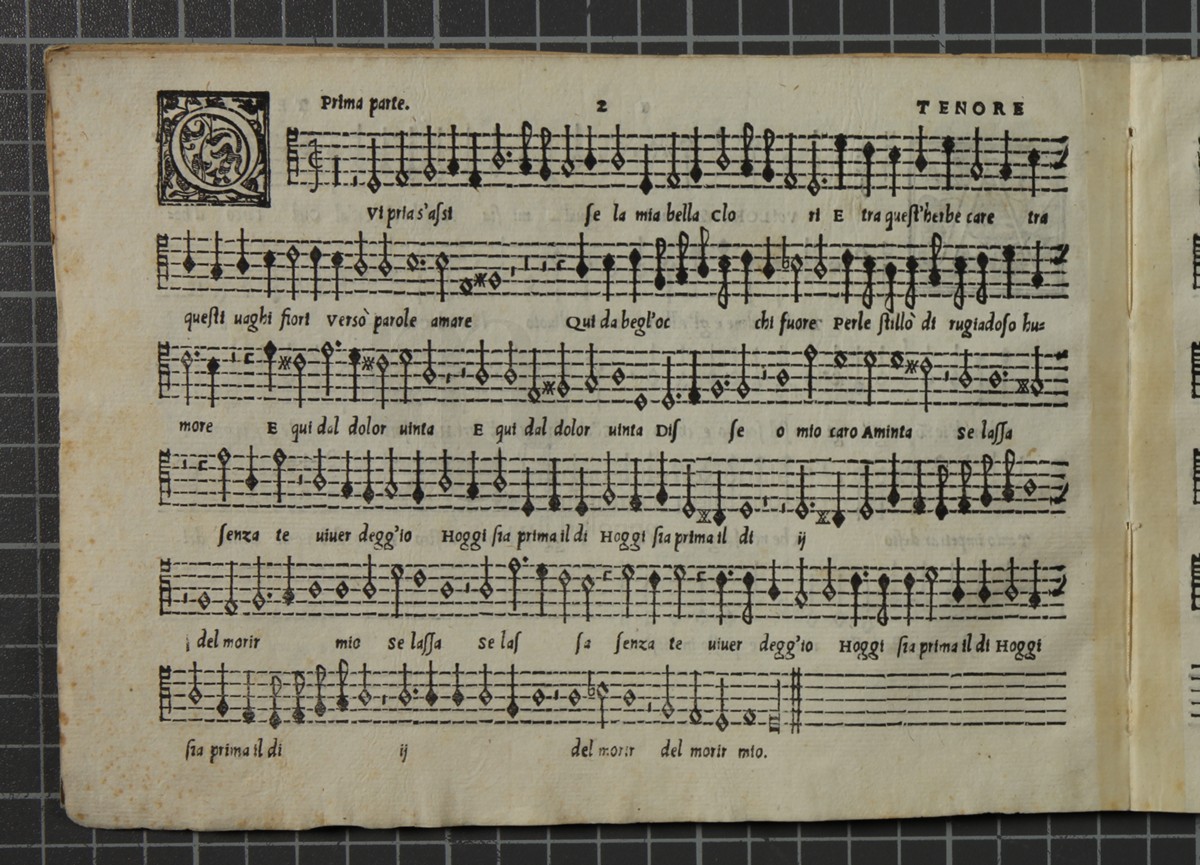 Prima parte. 2 TENORE
QVi pria s'aſsi ſe la mia bella Clo ri E tra queſt'herbe care tra
queſti uaghi fiori Versò parole amare Qui da begl'oc chi fuore Perle ſtillò di rugiadoſo hu=
more E qui dal dolor uinta E qui dal dolor uinta Diſ ſe o mio caro Aminta Se laſſa
ſenza te uiuer degg'io Hoggi ſia prima il di Hoggi ſia prima il di ij
del morir mio Se laſſa Se laſ ſa ſenza te uiuer degg'io Hoggi ſia prima il di Hoggi
ſia prima il di ij del morir del morir mio.